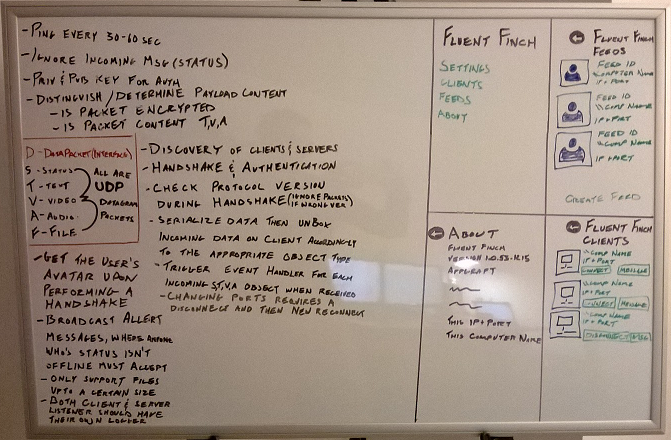 - Ping every 30-60 sec
- Ignore incoming msg (status)
- Priv & Pub key for auth
- Distinguish / Determine payload content
- is packet encrypted
- is packet content T,V,A
D - DataPacket (Interface)
S - Status
T - Text
V - Video
A - Audio
F - File
All are
UDP
Datagram
Packets
- Discovery of clients & servers
- Handshake & Authentication
- Check protocol version
during handshake (ignore packets
if wrong ver)
- Serialize data then unbox
incoming data on client accordingly
to the appropriate object type
- Trigger event handler for each
incoming S,T,V,A object when received
- Changing ports requires a
disconnect and then new reconnect
- Get the user's
avatar upon
performing a
handshake
- Broadcast Allert
messages, where anyone
who's status isn't
offline must accept
- Only support files
upto a certain size
- Both client & server
listener should have
their own logger
Fluent Finch
Settings
Clients
Feeds
About
Fluent Finch
Feeds
Feed ID
\\Computer Name
IP+Port
Feed ID
\\Comp Name
IP+Port
Feed ID
\\Comp Name
IP+Port
Create Feed
About
Fluent Finch
This IP+Port
This Computer Name
Fluent Finch
Clients
\\Comp Name
IP+Port
Connect Message
\\Comp Name
IP+Port
Connect Message
\\Comp Name
IP+Port
Disconnect Msg